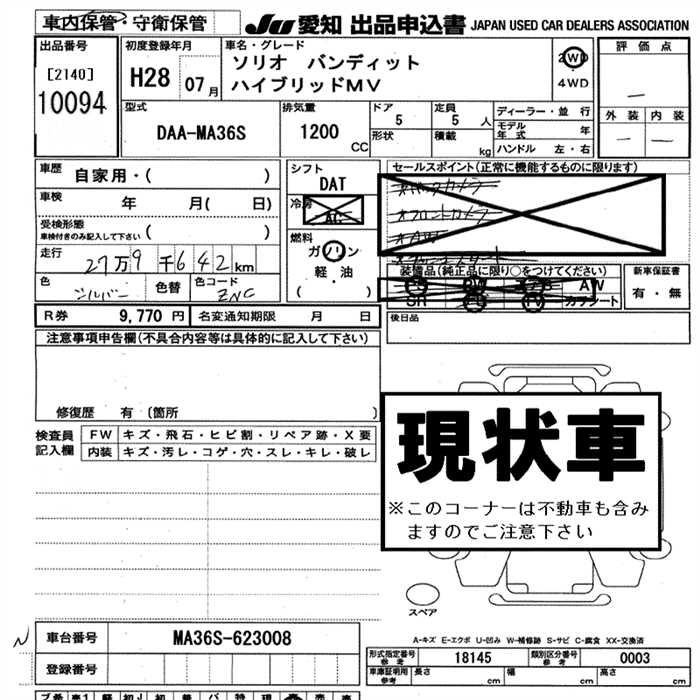 車内保管・守衛保管
JU 愛知 出品申込書 JAPAN USED CAR DEALERS ASSOCIATION
出品番号
[2140]
10094
初度登録年月
H28 07 月
車名・グレード
ソリオ バンディット
ハイブリッドMV
2WD
4WD
評価点
—
外装 内装
— —
型式
DAA-MA36S
排気量
1200 CC
ドア 5
形状
定員 5 人
積載 kg
ディーラー・並行
モデル年式 年
ハンドル 左・右
車歴
自家用・( )
車検
年 月( 日)
受検形態
車検付きのみ記入して下さい ( )
走行
27万9千642km
色 シルバー 色替 色コード ZNC
シフト
DAT
冷房
AC
燃料
ガソリン
軽・油
( )
セールスポイント(正常に機能するものに限ります)
バックカメラ
フロントカメラ
装備品(純正品に限り○をつけてください)
AW
SR TV カワシート
新車保証書
有・無
後日品
R券 9,770 円 名変通知期限 月 日
注意事項申告欄(不具合内容等は具体的に記入して下さい)
修復歴 有 (箇所 )
検査員記入欄
FW キズ・飛石・ヒビ割・リペア跡・X要
内装 キズ・汚レ・コゲ・穴・スレ・キレ・破レ
現状車
※このコーナーは不動車も含み
ますのでご注意下さい
スペア
A-キズ E-エクボ U-凹み W-補修跡 S-サビ C-腐食 XX-交換済
N 車台番号 MA36S-623008
登録番号
形式指定番号 参考 18145 類別区分番号 参考 0003
車庫証明用 参考 長さ cm 幅 cm 高さ cm